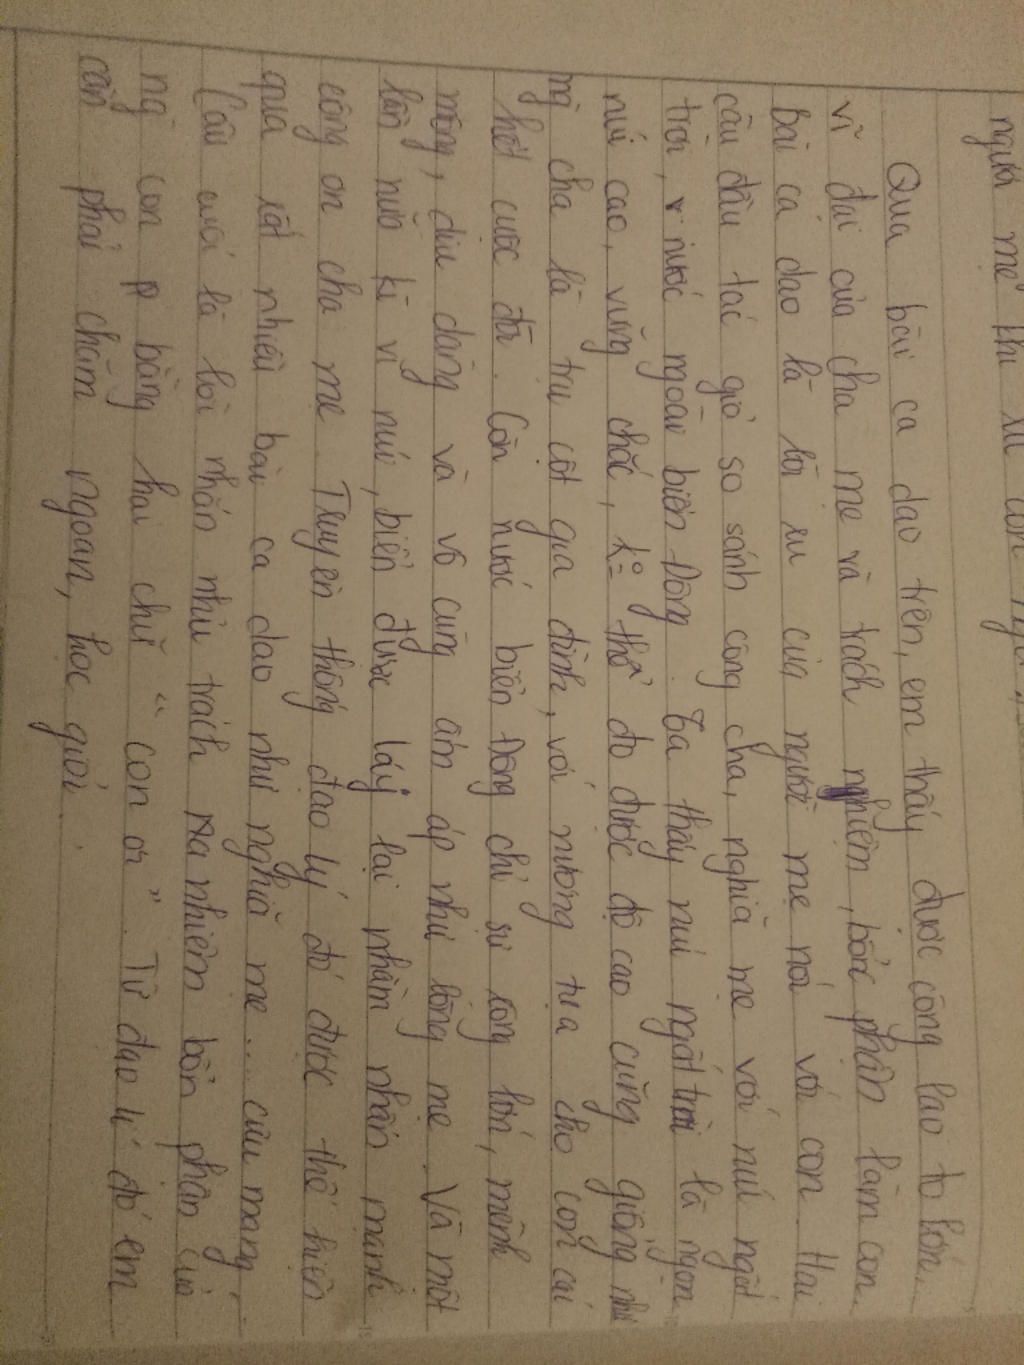 người mẹ khi ru con
Qua bài ca dao trên, em thấy được công lao to lớn,
vĩ đại của cha mẹ và trách nghiệm, bổn phận làm con.
Bài ca dao là lời ru của người mẹ nói với con. Hai
câu đầu tác giả so sánh công cha, nghĩa mẹ với núi ngất
trời, nước ngoài biển Đông. Ta thấy núi ngất trời là ngọn
núi cao, vững chắc, ko thể đo được độ cao cũng giống như
ng cha là trụ cột gia đình, với nương tựa cho con cái
hết cuộc đời. Còn nước biển Đông chỉ sự rộng lớn, mênh
mông, dịu dàng và vô cùng ấm áp như lòng mẹ. Và một
lần nữa kì vĩ núi, biển được láy lại nhằm nhấn mạnh
công ơn cha mẹ. Truyền thống đạo lý đó được thể hiện
qua rất nhiều bài ca dao như nghĩa mẹ... cưu mang.
Câu cuối là lời nhắn nhủ trách nhiệm bổn phận của
ng con bằng hai chữ "con ơi". Từ đạo lí đó em
cần phải chăm ngoan, học giỏi.